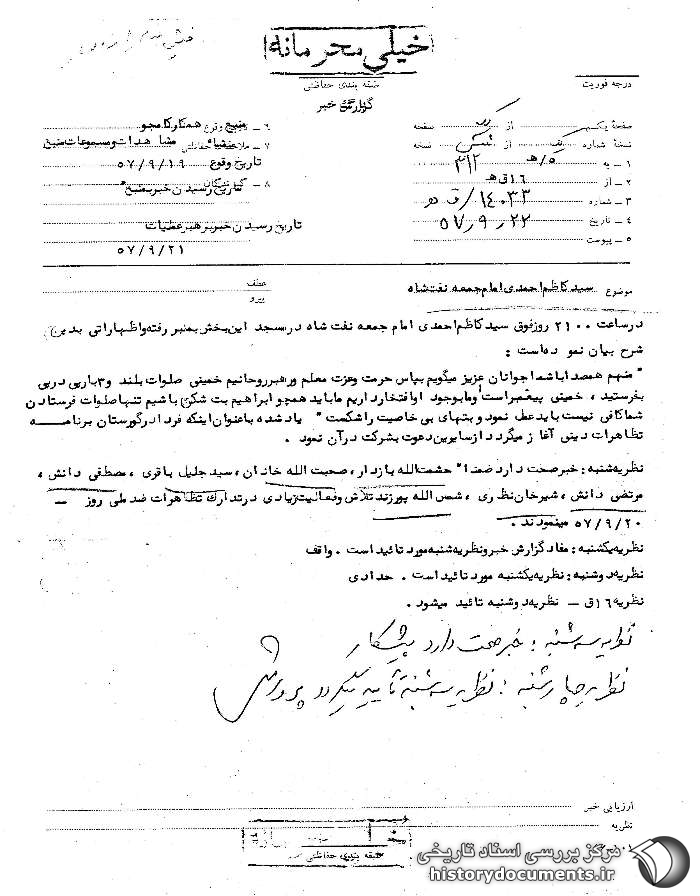 خیلی محرمانه
طبقه بندی حفاظتی
درجه فوریت
گزارش خبر
صفحهٔ یکم از یک صفحه
نسخهٔ شماره یک از نسخه
۱ – به ۳۱۲ / ۵ه
۲ – از ۱۶ق ه
۳ – شماره ۱۴۰۳۳ / ق ه
۴ – تاریخ ۵۷٫۹٫۲۲
۵ – پیوست
۶ – منبع همکار کامجو
۷ – منشاء مشاهدات و مسموعات منبع
تاریخ وقوع ۵۷/۹/۱۹
۸ – تاریخ رسیدن خبر بمنبع
تاریخ رسیدن خبر برهبر عملیات
۵۷/۹/۲۱
موضوع سید کاظم احمدی امام جمعه نفت شاه
عطف
پیرو
در ساعت ۲۱۰۰ روز فوق سید کاظم احمدی امام جمعه نفت شاه در مسجد این بخش بمنبر رفته و اظهاراتی بدین
شرح بیان نموده است :
" منهم همصدا با شما جوانان عزیز میگویم بپاس حرمت و عزت معلم و رهبر روحانیم خمینی صلوات بلند و ۳ بار پی در پی
بفرستید ، خمینی پیغمبر است و ما بوجود او افتخار داریم ما باید همچو ابراهیم بت شکن باشیم تنها صلوات فرستادن
شما کافی نیست باید عمل نمود و بتهای بی خاصیت را شکست " یاد شده با عنوان اینکه فردا در گورستان برنامه
تظاهرات دینی آغاز میگردد از سایرین دعوت بشرکت در آن نمود .
نظریه شنبه : خبر صحت دارد ضمنا" حشمت الله بازدار ، صحبت الله خادان ، سید جلیل باقری ، مصطفی دانش ،
مرتضی دانش ، شیرخان نظری ، شمس الله پورزند تلاش و فعالیت زیادی در تدارک تظاهرات ضد ملی روز –
۵۷/۹/۲۰ مینمودند .
نظریه یکشنبه : مفاد گزارش خبر و نظریه شنبه مورد تائید است . واقف
نظریه دوشنبه : نظریه یکشنبه مورد تائید است . حدادی
نظریه ۱۶ق – نظریه دوشنبه تائید میشود .
نظریه سه شنبه : خبر صحت دارد پیشکار
نظریه چهارشنبه : نظریه سه شنبه تأیید میگردد
ارزیابی خبر
نظریه
طبقه بندی حفاظتی
مرکز بررسی اسناد تاریخی
historydocuments.ir